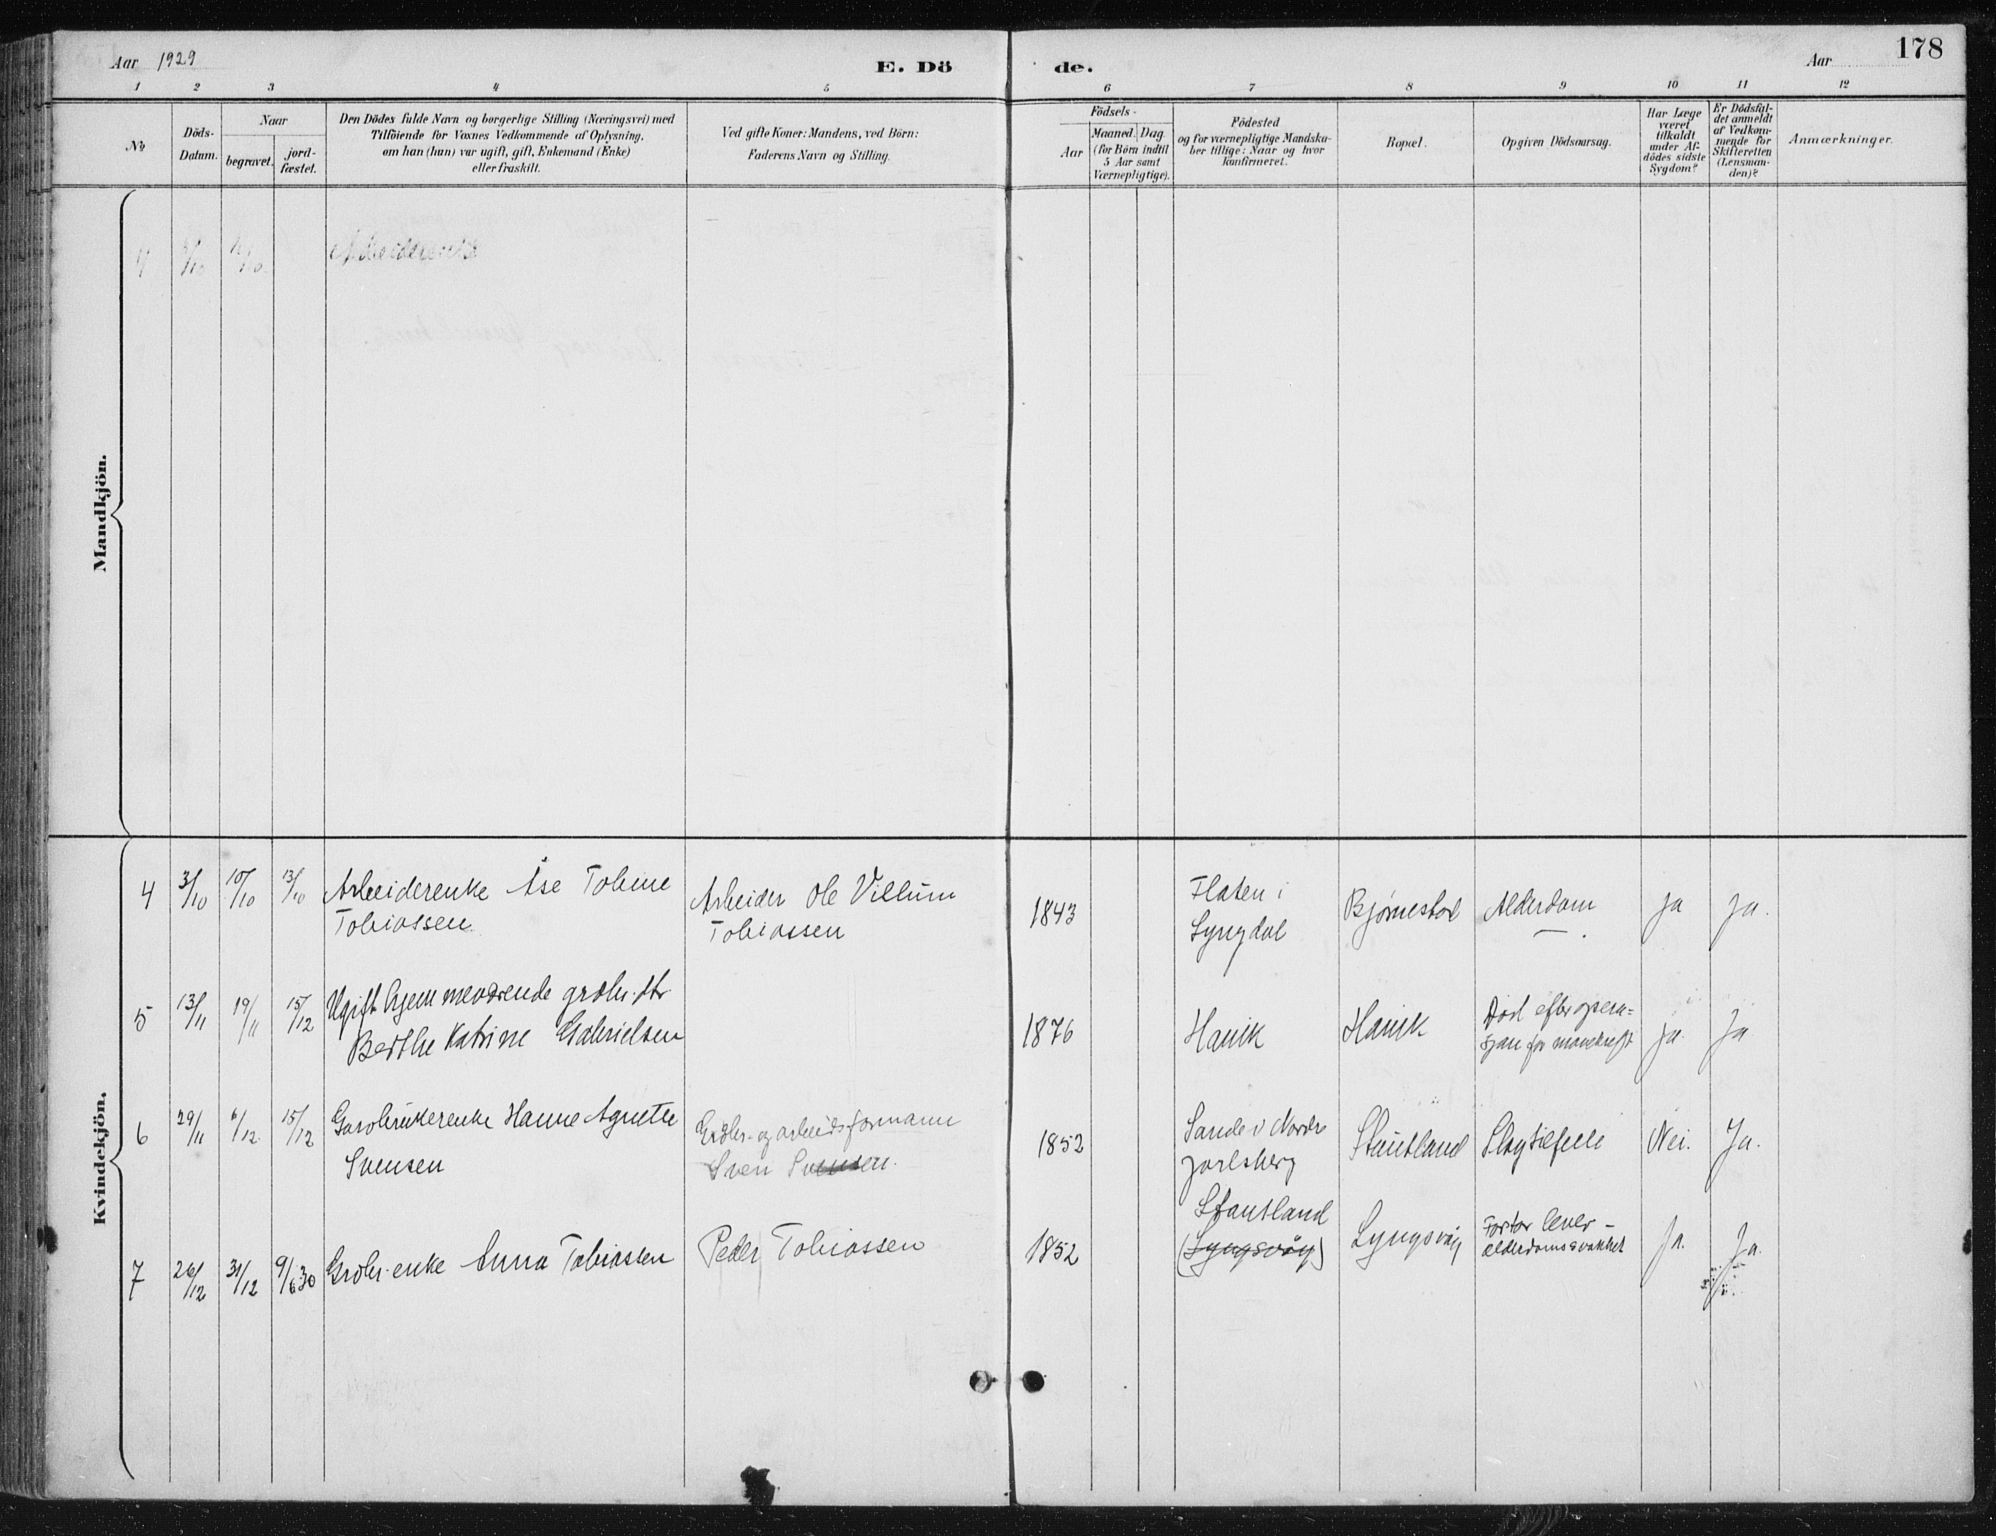 Aar 1929
E. Dö
de.
Aar
178
1 2 3 4 5 6 7 8 9 10 11 12
No
Döds-
Datum.
Naar
begravet.
jord-
fæstet.
Den Dödes fulde Navn og borgerlige Stilling (Næringsvei) med
Tilföiende for Voxnes Vedkommende af Oplysning,
om han (hun) var ugift, gift, Enkemand (Enke)
eller fraskilt.
Ved gifte Koner: Mandens, ved Börn:
Faderens Navn og Stilling.
Födsels-
Aar
Maaned. Dag.
(for Börn indtil
5 Aar samt
Værnepligtige).
Födested
og for værnepligtige Mandska-
ber tillige: Naar og hvor
konfirmeret.
Bopæl.
Opgiven Dödsaarsag.
Har Læge
været
tilkaldt
under Af-
dödes sidste
Sygdom?
Er Dödsfal-
det anmeldt
af Vedkom-
mende for
Skifteretten
(Lensman-
den)?
Anmærkninger.
Mandkjön.
4 3/10 10/10 Arbeiderenke
Kvindekjön.
4 3/10 10/10 13/10 Arbeiderenke Åse Tobine
Tobiassen
Arbeider Ole Villum
Tobiassen
1843
Flaten i
Lyngdal
Bjørnestad
Alderdom
ja
ja.
5 13/11 19/11 15/12 Ugift hjemmeværende grdbr. dtr
Berthe Katrine Gabrielsen
1876
Hauik
Hauik
Død efter opera=
sjon for mavekreft
ja.
Ja
6 29/11 6/12 15/12 Gardbrukerenke Hanne Agnete
Svensen
Grdbr.- og arbeidsformann
Sven Svensen.
1852
Sande i Nordre
Jarlsberg
Stautland
Slagtilfelle
Nei.
Ja.
7 26/12 31/12 9/6 30 Grdbr.enke Anna Tobiassen
Peder Tobiassen
1852
Stautland
(Lyngsvåg)
Lyngsvåg
Forstør. lever –
alderdomssvakhet
Ja.
Ja.